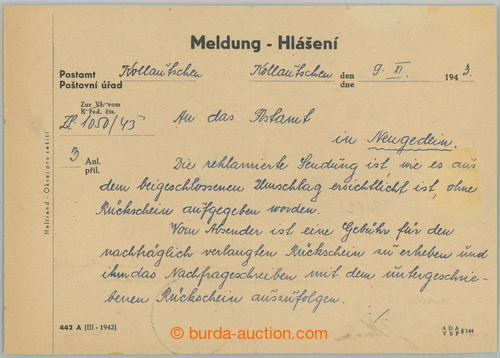 Meldung - Hlášení
Postamt Kollautschen Kollautschen den 9. XI. 1943.
Poštovní úřad dne
Zur Vfr. vom
K řed. čís.
Zl 1050/43
An das Postamt
in Neugedein.
3 Anl.
příl.
Die reklamierte Sendung ist, wie es aus
dem beigeschlossenen Umschlag ersichtlicht ist, ohne
Rückschein aufgegeben worden.
Vom Absender ist eine Gebühr für den
nachträglich verlangten Rückschein zu erheben und
ihm das Nachfrageschreiben mit dem untergeschrie-
benen Rückschein auszufolgen.
./.
Heftrand - Okraj pro sešití
442 A (III - 1942)
burda-auction.com